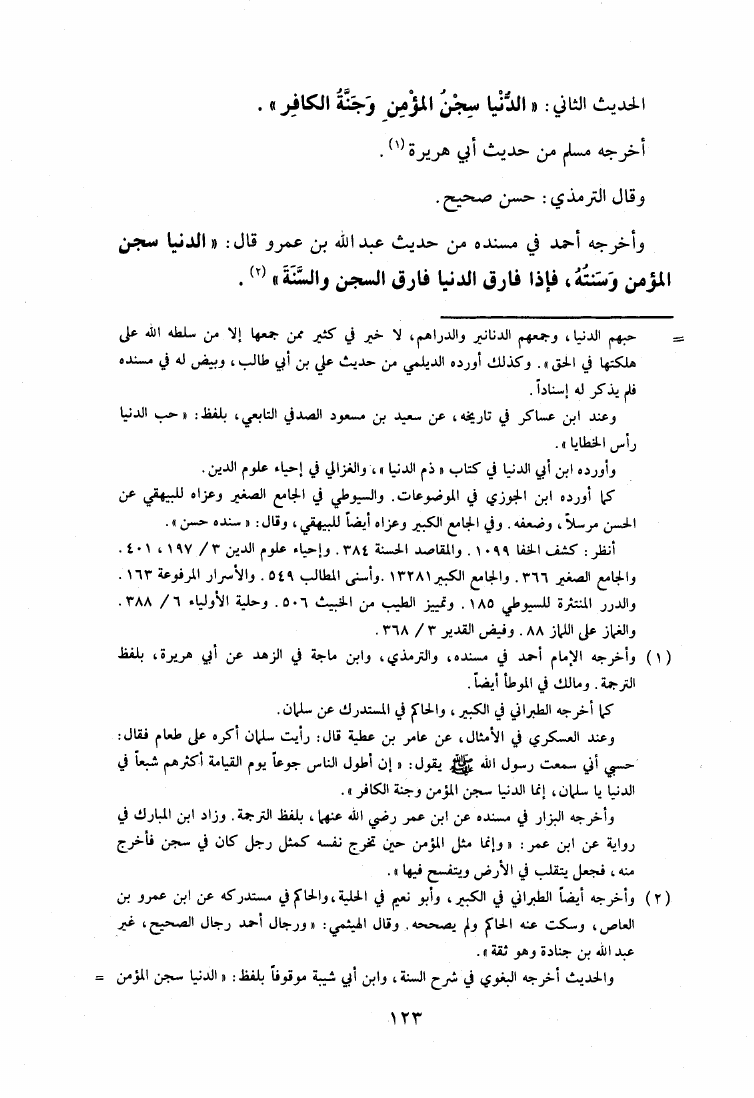 الحديث الثاني : « الدُّنْيا سِجْنُ المؤْمِنِ وَجَنَّةُ الكافِرِ » .
أخرجه مسلم من حديث أبي هريرة (١) .
وقال الترمذي : حسن صحيح .
وأخرجه أحمد في مسنده من حديث عبد الله بن عمرو قال : « الدنيا سجن
المؤمن وَسَنتُهُ ، فإذا فارق الدنيا فارق السجن والسَّنَةَ » (٢) .
= حبهم الدنيا ، وجمعهم الدنانير والدراهم ، لا خير في كثير ممن جمعها إلا من سلطه الله على
هلكتها في الحق » . وكذلك أورده الديلمي من حديث علي بن أبي طالب ، وبيض له في مسنده
فلم يذكر له إسناداً .
وعند ابن عساكر في تاريخه ، عن سعيد بن مسعود الصدفي التابعي ، بلفظ : « حب الدنيا
رأس الخطايا » .
وأورده ابن أبي الدنيا في كتاب « ذم الدنيا » ، والغزالي في إحياء علوم الدين .
كما أورده ابن الجوزي في الموضوعات . والسيوطي في الجامع الصغير وعزاه للبيهقي عن
الحسن مرسلاً ، وضعفه . وفي الجامع الكبير وعزاه أيضاً للبيهقي ، وقال : « سنده حسن » .
أنظر : كشف الخفا ١٠٩٩ . والمقاصد الحسنة ٣٨٤ . وإحياء علوم الدين ٣ / ١٩٧ ، ٤٠١ .
والجامع الصغير ٣٦٦ . والجامع الكبير ١٣٢٨١ . وأسنى المطالب ٥٤٩ . والأسرار المرفوعة ١٦٣ .
والدرر المنتثرة للسيوطي ١٨٥ . وتمييز الطيب من الخبيث ٥٠٦ . وحلية الأولياء ٦ / ٣٨٨ .
والغماز على اللماز ٨٨ . وفيض القدير ٣ / ٣٦٨ .
(١) وأخرجه الإمام أحمد في مسنده ، والترمذي ، وابن ماجة في الزهد عن أبي هريرة ، بلفظ
الترجمة . ومالك في الموطأ أيضاً .
كما أخرجه الطبراني في الكبير ، والحاكم في المستدرك عن سلمان .
وعند العسكري في الأمثال ، عن عامر بن عطية قال : رأيت سلمان أكره على طعام فقال :
حسبي أني سمعت رسول الله ﷺ يقول : « إن أطول الناس جوعاً يوم القيامة أكثرهم شبعاً في
الدنيا يا سلمان ، إنما الدنيا سجن المؤمن وجنة الكافر » .
وأخرجه البزار في مسنده عن ابن عمر رضي الله عنهما ، بلفظ الترجمة . وزاد ابن المبارك في
رواية عن ابن عمر : « وإنما مثل المؤمن حين تخرج نفسه كمثل رجل كان في سجن فأخرج
منه ، فجعل يتقلب في الأرض ويتفسح فيها » .
(٢) وأخرجه أيضاً الطبراني في الكبير ، وأبو نعيم في الحلية ، والحاكم في مستدركه عن ابن عمرو بن
العاص ، وسكت عنه الحاكم ولم يصححه . وقال الهيثمي : « ورجال أحمد رجال الصحيح ، غير
عبد الله بن جنادة وهو ثقة » .
والحديث أخرجه البغوي في شرح السنة ، وابن أبي شيبة موقوفاً بلفظ : « الدنيا سجن المؤمن =
١٢٣